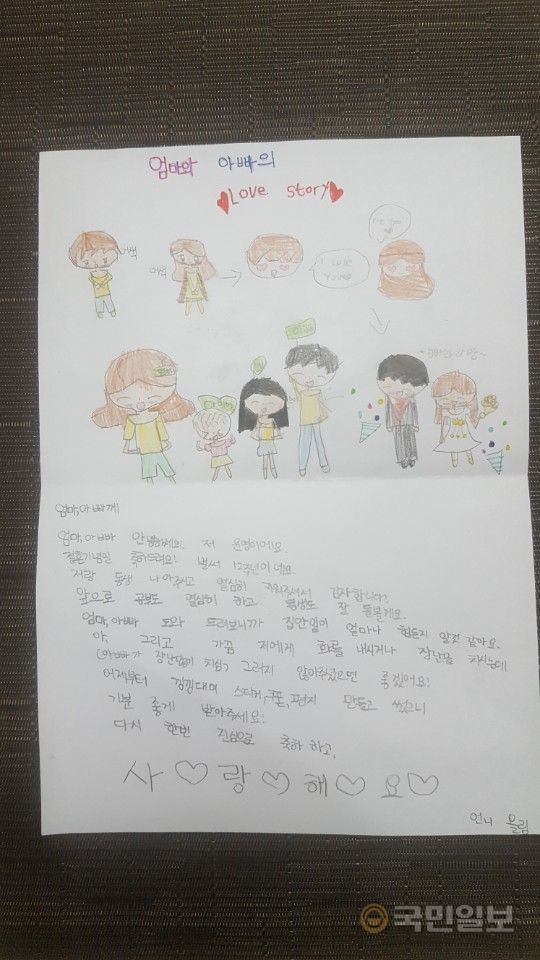 엄마와 아빠의
Love story
어색
어색
I Love You
me too
엄마, 아빠께!
엄마, 아빠 안녕하세요! 저 윤영이에요.
결혼기념일 축하드려요! 벌써 12주년이네요.
저랑 동생 낳아주시고 열심히 키워주셔서 감사합니다!
앞으로 공부도 열심히 하고 동생도 잘 돌볼게요.
엄마, 아빠 도와 드려보니까 집안일이 얼마나 힘든지 알것 같아요.
아, 그리고 가끔 저에게 화를 내시거나 장난을 치시는데
(아빠가 장난많이 치심) 그러지 않아주셨으면 좋겠어요!
어제부터 낑낑대며 스티커, 쿠폰, 편지 만들고 썼으니
기분 좋게 받아주세요!
다시 한번 진심으로 축하 하고,
사♡랑♡해♡요♡
언니 올림
국민일보